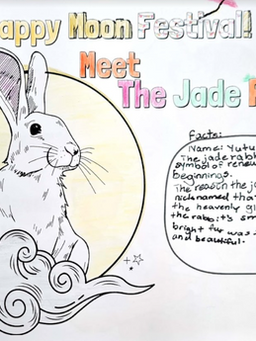 appy Moon Festival!
Meet
The Jade R
Facts:
Name: Yutu
The jade rabb
symbol of renew
beginnings.
The reason the ja
nicknamed that
the heavenly gl
the rabbits sm
bright fur was s
and beautiful.